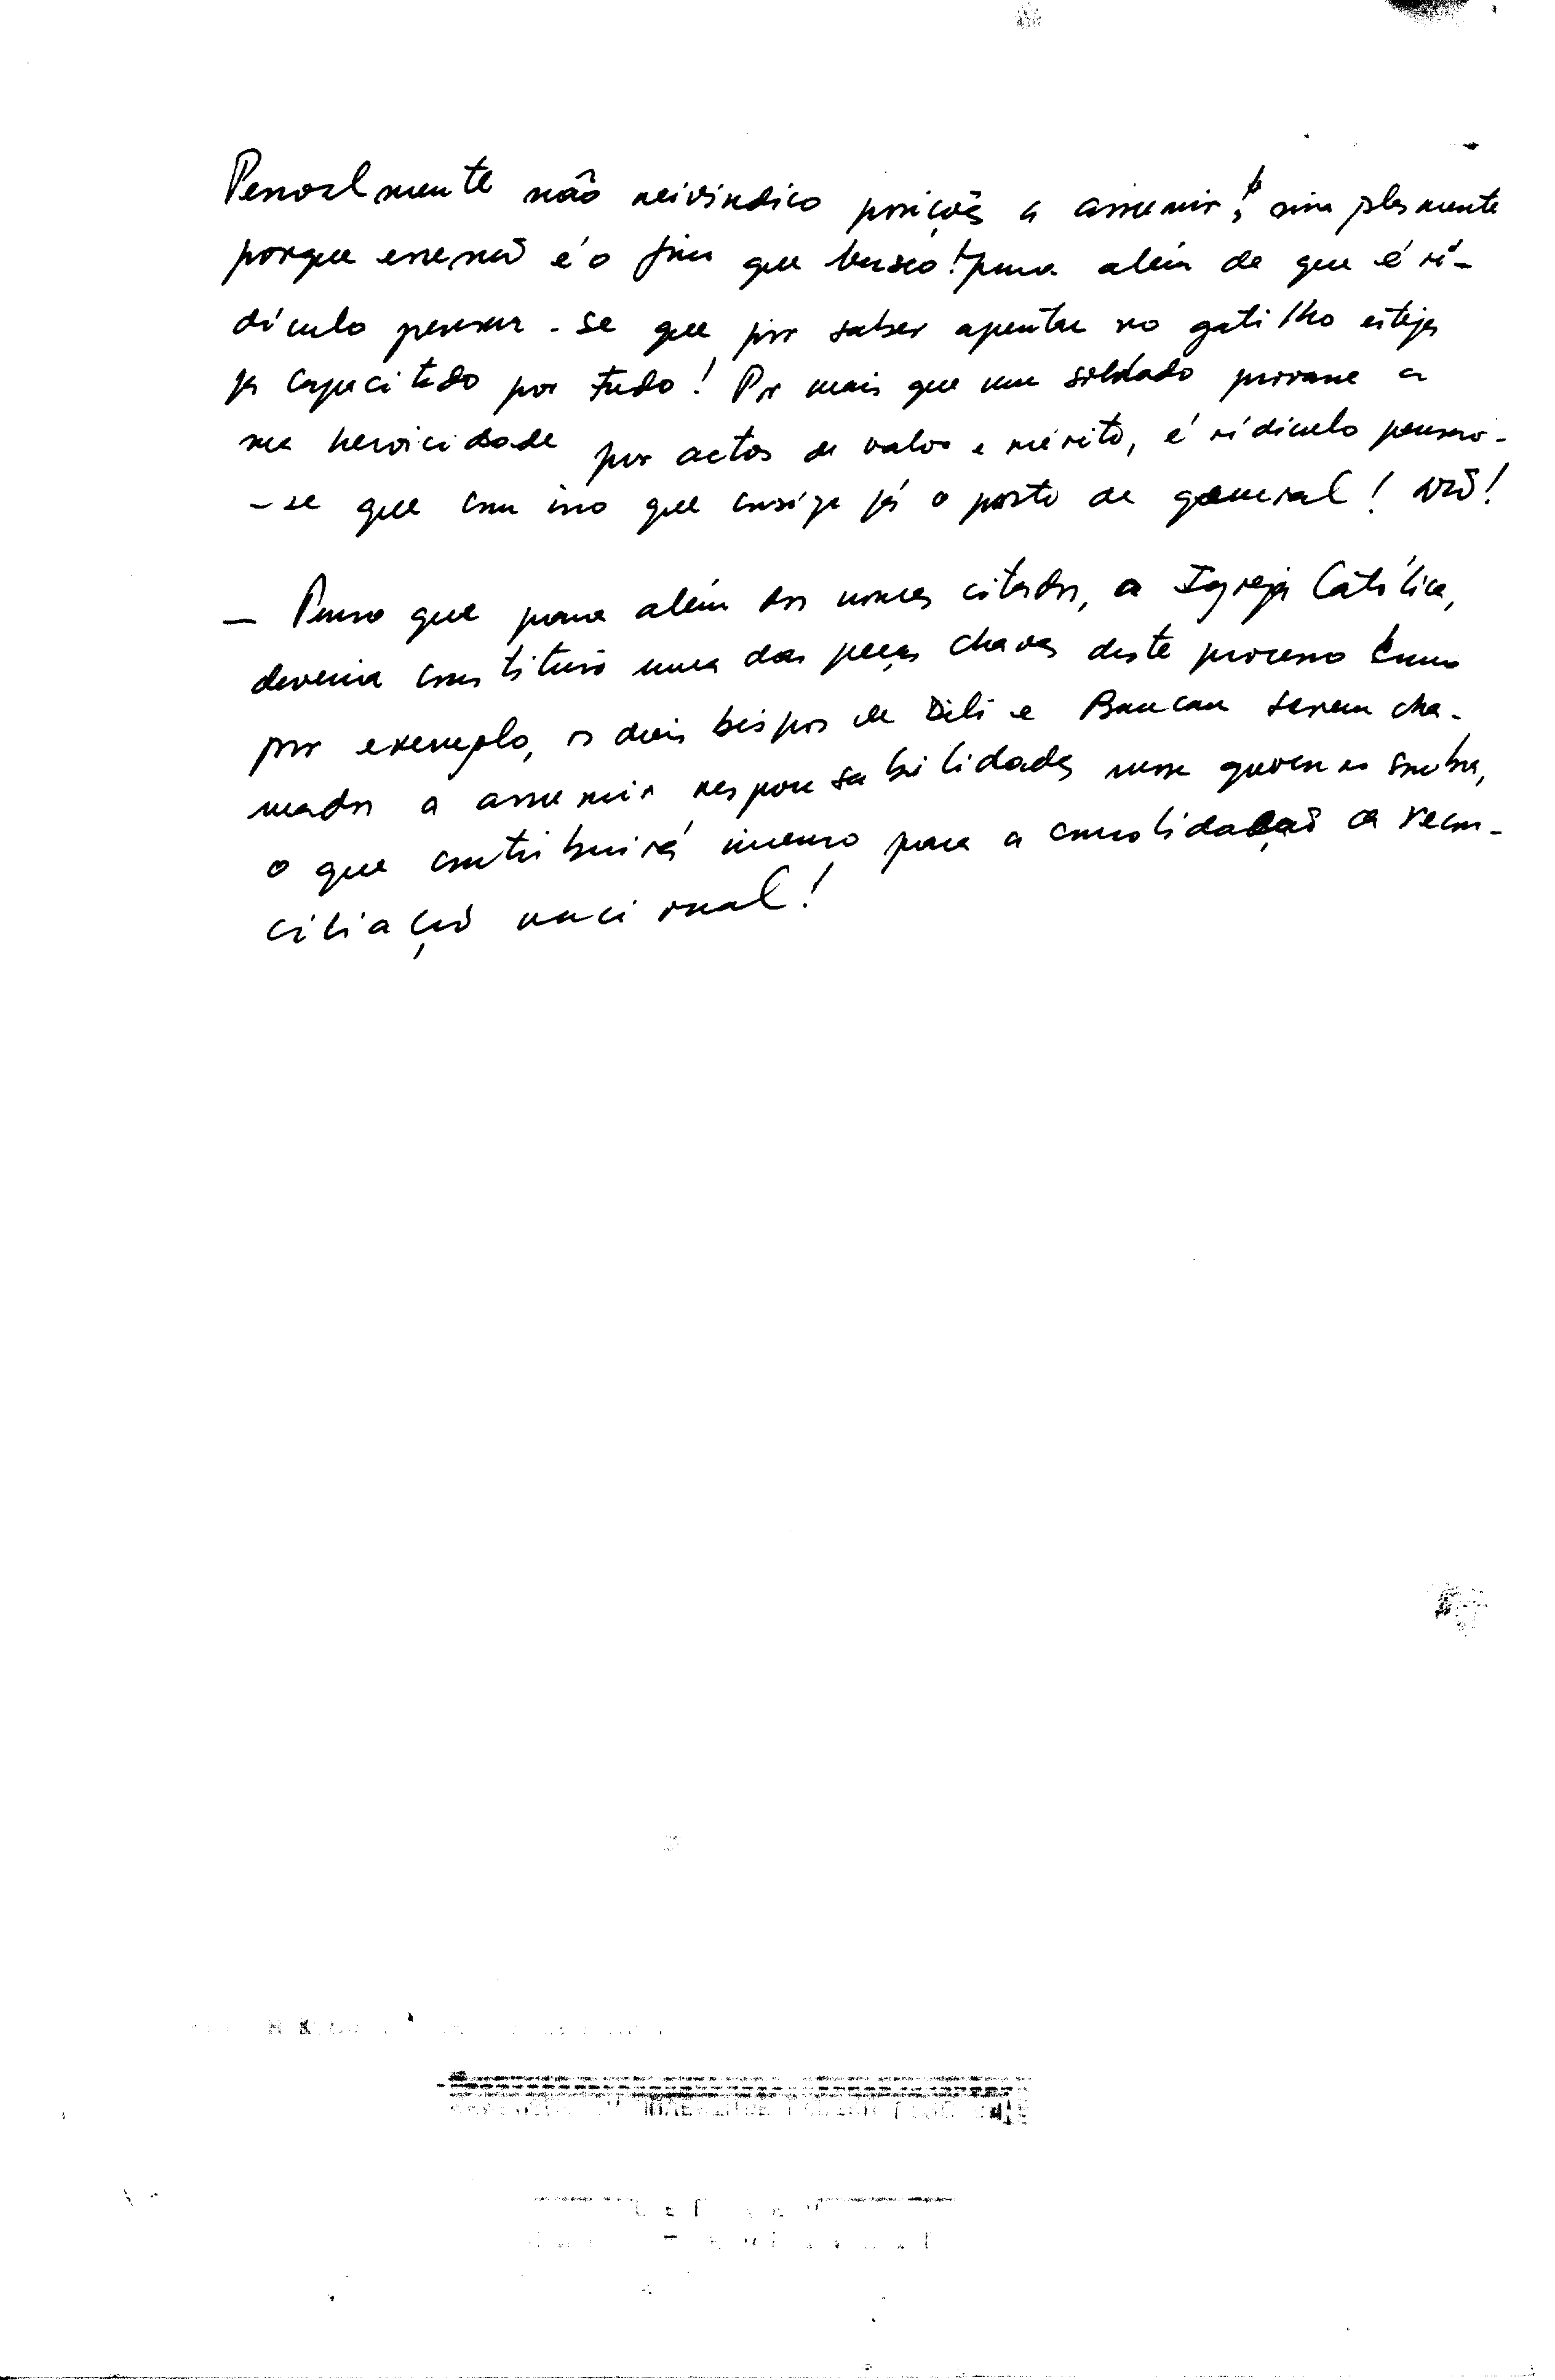 Pessoalmente não reivindico posições a assumir, simplesmente
porque esse não é o fim que busco! para além de que é ri-
dículo pensar-se que por saber apertar no gatilho esteja
já capacitado por tudo! Por mais que um soldado provasse a
sua heroicidade por actos de valor e mérito, é ridículo pensar-
-se que com isso que consiga já o posto de general! Não!
— Penso que para além dos nomes citados, a Igreja Católica,
deveria constituir uma das peças chaves deste processo como
por exemplo, os dois bispos de Dili e Baucau serem cha-
mados a assumir responsabilidades nesse governo sombra,
o que contribuirá imenso para a consolidação da recon-
ciliação nacional!